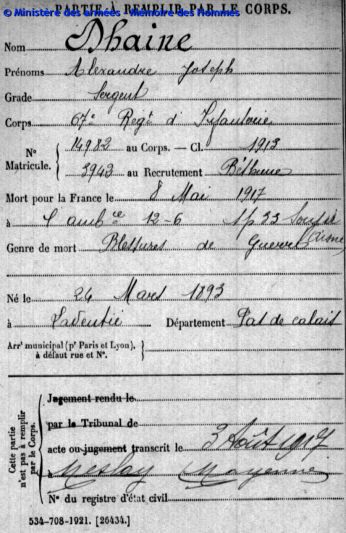 PARTIE À REMPLIR PAR LE CORPS.
© Ministère des armées - Mémoire des Hommes
Nom Dhaine
Prénoms Alexandre Joseph
Grade Sergent
Corps 67e Regt d'Infanterie
No Matricule. 14982 au Corps. — Cl. 1913
3943 au Recrutement Béthune
Mort pour la France le 8 Mai 1917
à l'ambce 12-6 Sp 33 (Aisne)
Genre de mort Blessures de Guerre
Né le 24 Mars 1893
à Laventie Département Pas de calais
Arrt municipal (pr Paris et Lyon),
à défaut rue et No.
Cette partie
n'est pas à remplir
par le Corps.
Jugement rendu le
par le Tribunal de
acte ou jugement transcrit le 3 Août 1917
à Meslay Mayenne
No du registre d'état civil
534-708-1921. [26434.]